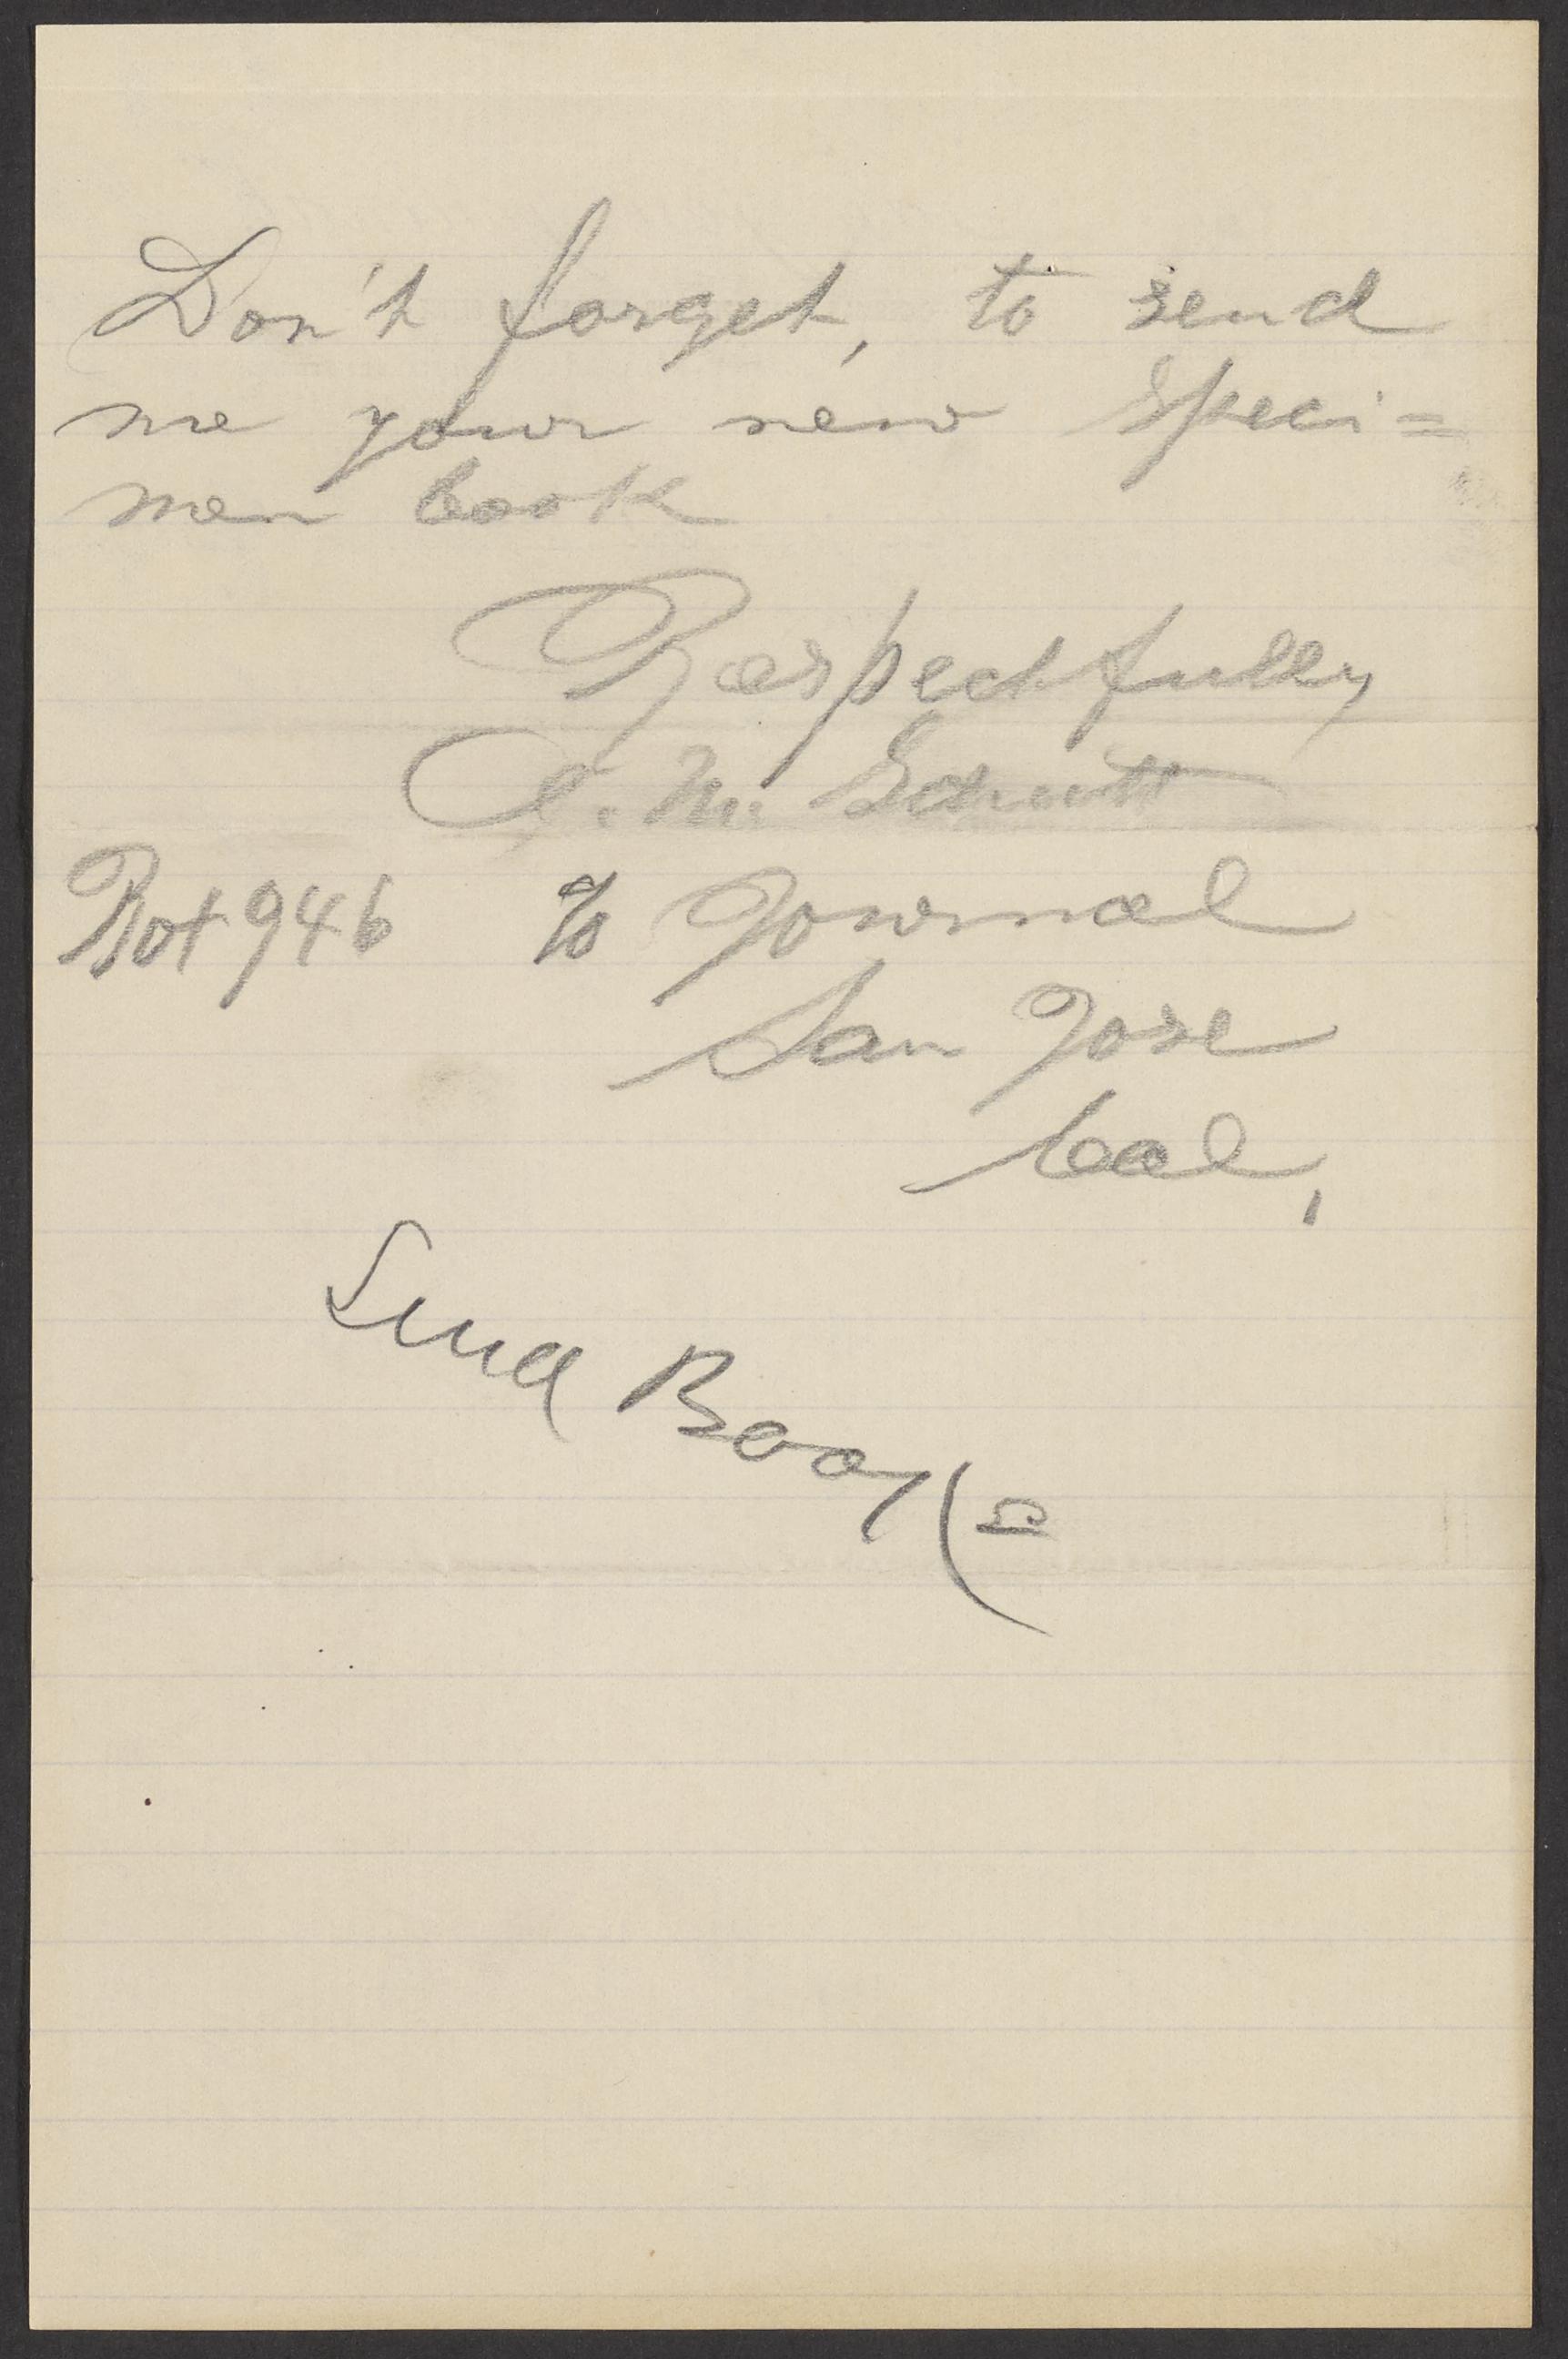 Don't forget, to send
me your new speci=
men book
Respectfully
A. M. Schutt
Box 946 % Journal
San Jose
Cal,
Send Book